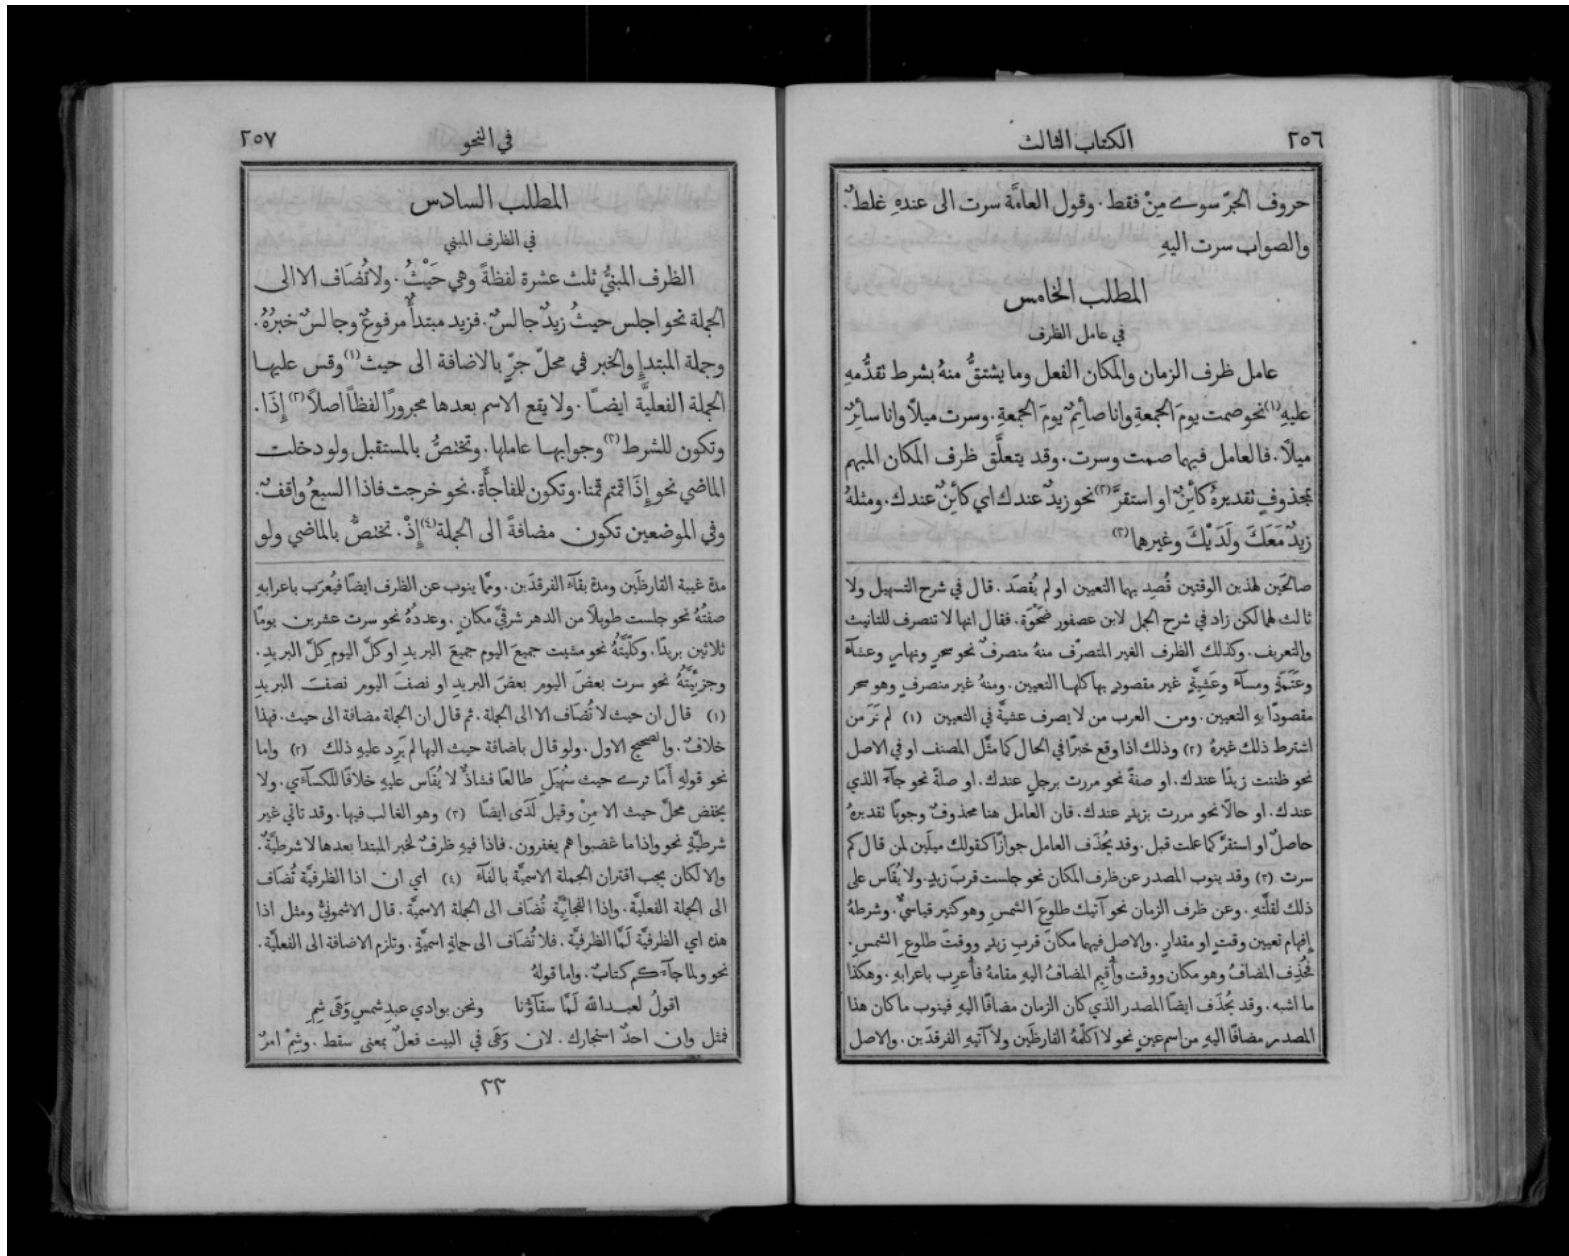 ٢٥٦
الكتاب الثالث
حروف الجرّ سوے مِنْ فقط. وقول العامَّة سرت الى عندهِ غلطٌ.
والصواب سرت اليهِ
المطلب الخامس
في عامل الظرف
عامل ظرف الزمان والمكان الفعل وما يشتقُّ منهُ بشرط تقدُّمهِ
عليهِ(١) نحو صمت يومَ الجمعةِ وانا صائِمٌ يومَ الجمعةِ. وسرت ميلاً وانا سائِرٌ
ميلاً. فالعامل فيهما صمت وسرت. وقد يتعلَّق ظرف المكان المبهم
بمحذوفٍ تقديرهُ كائِنٌ او استقرَّ(٢) نحو زيدٌ عندك اي كائِنٌ عندك. ومثلهُ
زيدٌ مَعَكَ ولَدَيْكَ وغيرهما(٣)
صالحَين لهذين الوقتين قُصِد بهما التعيين او لم يُقصَد. قال في شرح التسهيل ولا
ثالث لهما لكن زاد في شرح الجمل لابن عصفور ضَحْوَة. فقال انها لا تنصرف للتانيث
والتعريف. وكذلك الظرف الغير المتصرّف منهُ منصرفٌ نحو سحرٍ ونهارٍ وعشآءٍ
وعَتَمَةٍ ومسآءٍ وعَشِيةٍ غير مقصودٍ بها كلها التعيين. ومنهُ غير منصرفٍ وهو سحر
مقصودًا بهِ التعيين. ومن العرب من لا يصرف عشيَّة في التعيين (١) لم نَرَ من
اشترط ذلك غيرهُ (٢) وذلك اذا وقع خبرًا في الحال كما مثَّل المصنف او في الاصل
نحو ظننت زيدًا عندك. او صفةً نحو مررت برجلٍ عندك. او صلةً نحو جآءَ الذي
عندك. او حالًا نحو مررت بزيدٍ عندك. فان العامل هنا محذوفٌ وجوبًا تقديرهُ
حاصلٌ او استقرَّ كما علمت قبل. وقد يُحذَف العامل جوازًا كقولك ميلَين لمن قال كم
سرت (٣) وقد ينوب المصدر عن ظرف المكان نحو جلست قربَ زيدٍ. ولا يُقاس على
ذلك لقلَّتهِ. وعن ظرف الزمان نحو آتيك طلوعَ الشمسِ وهو كثير قياسيٌّ. وشرطهُ
إفهام تعيين وقتٍ او مقدارٍ. والاصل فيهما مكانَ قربِ زيدٍ ووقتَ طلوعِ الشمسِ.
فحُذِف المضافُ وهو مكان ووقت وأُقِيم المضافُ اليهِ مقامهُ فأُعرِب باعرابهِ. وهكذا
ما اشبه. وقد يُحذَف ايضًا المصدر الذي كان الزمان مضافًا اليهِ فينوب ما كان هذا
المصدر مضافًا اليهِ من اسم عينٍ نحو لا اكلّمهُ القارظَين ولا آتيهِ الفرقدَين. والاصل
في النحو
٢٥٧
المطلب السادس
في الظرف المبني
الظرف المبنيُّ ثلث عشرة لفظةً وهي حَيْثُ. ولا تُضَاف الا الى
الجملة نحو اجلس حيثُ زيدٌ جالسٌ. فزيد مبتدأٌ مرفوعٌ وجالسٌ خبرُهُ.
وجملة المبتدإِ والخبر في محلّ جرٍّ بالاضافة الى حيث(١) وقس عليها
الجملة الفعليَّة ايضًا. ولا يقع الاسم بعدها مجرورًا لفظًا اصلاً(٢) إِذَا.
وتكون للشرط(٣) وجوابها عاملها. وتختصُّ بالمستقبل ولو دخلت
الماضي نحو إِذَا قمتم قمنا. وتكون للمفاجأَة. نحو خرجت فاذا السبعُ واقفٌ.
وفي الموضعين تكون مضافةً الى الجملة(٤) إِذْ. تختصُّ بالماضي ولو
مدة غيبة القارظَين ومدة بقآء الفرقدَين. ومما ينوب عن الظرف ايضًا فيُعرَب باعرابهِ
صفتُهُ نحو جلست طويلًا من الدهر شرقيَّ مكانٍ. وعددهُ نحو سرت عشرين يومًا
ثلاثين بريدًا. وكلّيَّتُهُ نحو مشيت جميعَ اليوم جميعَ البريدِ او كلَّ اليوم كلَّ البريدِ.
وجزئيَّتُهُ نحو سرت بعضَ اليوم بعضَ البريدِ او نصفَ اليوم نصفَ البريدِ
(١) قال ان حيث لا تُضَاف الا الى الجملة. ثم قال ان الجملة مضافة الى حيث. فهذا
خلافٌ. والصحيح الاول. ولو قال باضافة حيث اليها لم يَرِد عليهِ ذلك (٢) واما
نحو قولهِ أَمَا ترے حيث سُهَيلٍ طالعًا فشاذٌّ لا يُقَاس عليهِ خلافًا للكسآءي. ولا
يخفض محلَّ حيث الا مِنْ وقيل لَدَى ايضًا (٣) وهو الغالب فيها. وقد تاتي غير
شرطيَّةٍ نحو واذا ما غضبوا هم يغفرون. فاذا فيهِ ظرفٌ لخبر المبتدا بعدها لا شرطيَّةٌ.
والا لكان يجب اقتران الجملة الاسميَّة بالفآء (٤) اي ان اذا الظرفيَّة تُضَاف
الى الجملة الفعليَّة. واذا الفجائيَّة تُضَاف الى الجملة الاسميَّة. قال الاشمونيُّ ومثل اذا
هذه اي الظرفيَّة لَمَّا الظرفيَّة. فلا تُضَاف الى جملةٍ اسميَّةٍ. وتلزم الاضافة الى الفعليَّة.
نحو ولما جآءَكم كتابٌ. واما قولهُ
اقولُ لعبدالله لَمَّا سقآؤنا ونحن بوادي عبدِ شمسٍ وَهَى شِمِ
فمثل وان احدٌ استجارك. لان وَهَى في البيت فعلٌ بمعنى سقط. وشِمْ امرٌ
٣٣